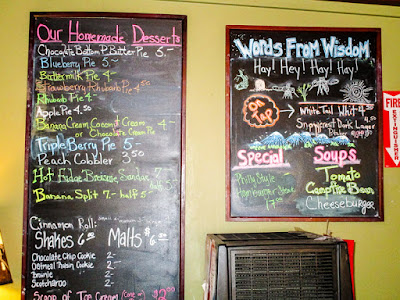 Our Homemade Desserts
Chocolate Bottom P. Butter Pie 5.-
Blueberry Pie 5.-
Buttermilk Pie 4-
Strawberry Rhubarb Pie 4.50
Rhubarb Pie 4-
Apple Pie 4.50
Banana Cream, Coconut Cream 4.-
or Chocolate Cream Pie
Triple Berry Pie 5-
Peach Cobbler 3.50
Hot Fudge Brownie Sundae
Banana Split 7.- half 5-
Cinnamon Roll:
Shakes 6 Malts 6
Chocolate Chip Cookie 2-
Oatmeal Raisin Cookie 2-
Brownie 2-
Scotcharoo 2-
Scoop of Ice Cream $2.00
Words From Wisdom
Hay! Hey! Hay! Hay!
On Tap
White Tail Wht 4.50
Lager
Special
Soups
Philly Style
Hamburger
Tomato
Campfire Bean
Cheeseburger
FIRE
EXTINGUISHER